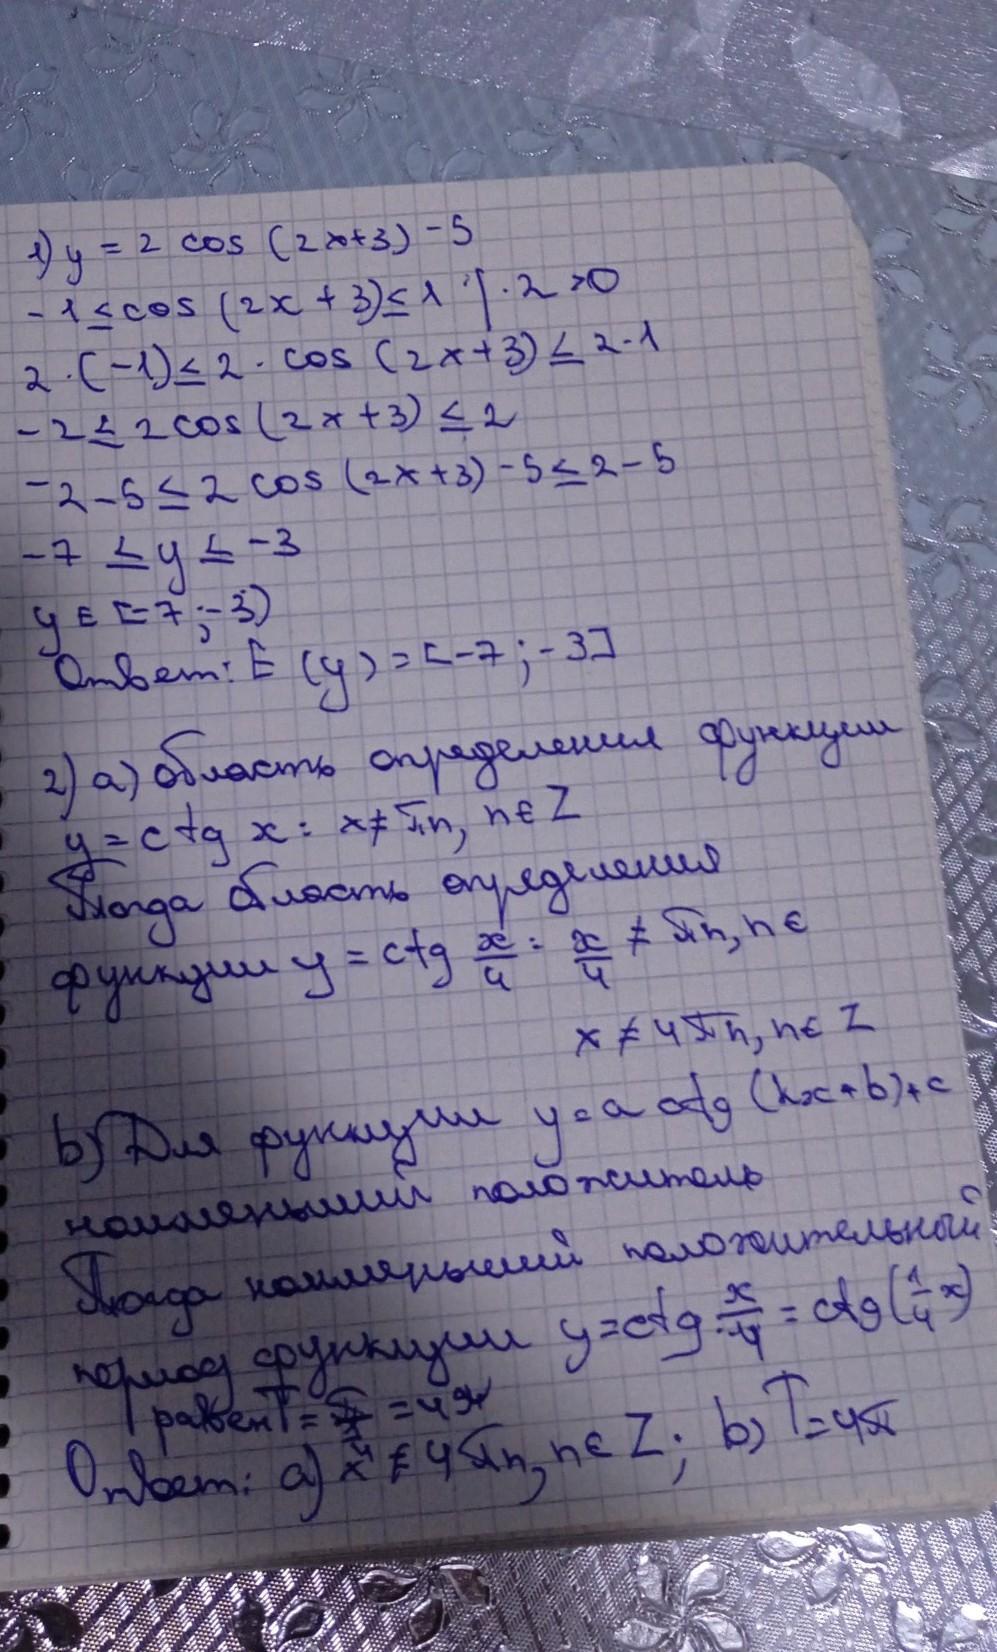 1) y = 2 cos (2x+3) - 5
-1 ≤ cos (2x + 3) ≤ 1 | · 2 > 0
2 · (-1) ≤ 2 · cos (2x+3) ≤ 2 · 1
-2 ≤ 2 cos (2x+3) ≤ 2
-2-5 ≤ 2 cos (2x+3) -5 ≤ 2-5
-7 ≤ y ≤ -3
y ∈ [-7 ; -3)
Ответ: E (y) = [-7 ; -3]
2) a) область определения функции
y = ctg x : x ≠ πn, n ∈ Z
Тогда область определения
функции y = ctg x/4 : x/4 ≠ πn, n ∈
x ≠ 4πn, n ∈ Z
b) Для функции y = a ctg (kx + b) + c
положитель
Тогда положительный
период функции y = ctg x/4 = ctg (1/4 x)
равен T = = 4π
Ответ: a) x ≠ 4πn, n ∈ Z; b) T = 4π